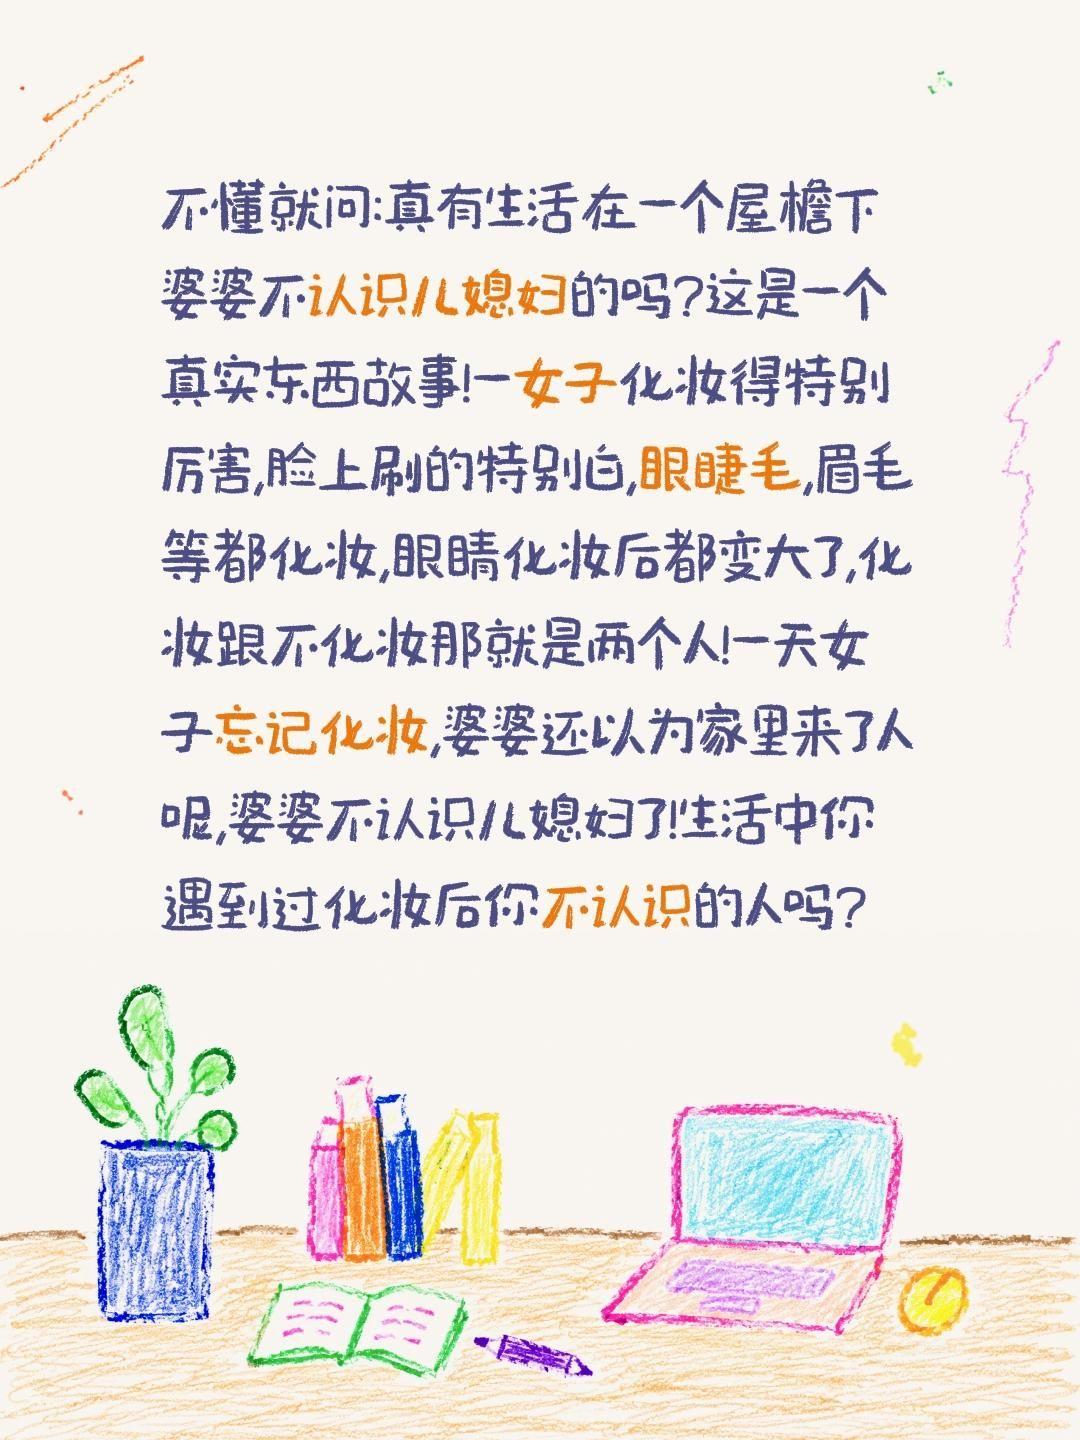 不懂就问:真有生活在一个屋檐下
婆婆不认识儿媳妇的吗?这是一个
真实东西故事!一女子化妆得特别
厉害,脸上刷的特别白,眼睫毛,眉毛
等都化妆,眼睛化妆后都变大了,化
妆跟不化妆那就是两个人!一天女
子忘记化妆,婆婆还以为家里来了人
呢,婆婆不认识儿媳妇了!生活中你
遇到过化妆后你不认识的人吗?